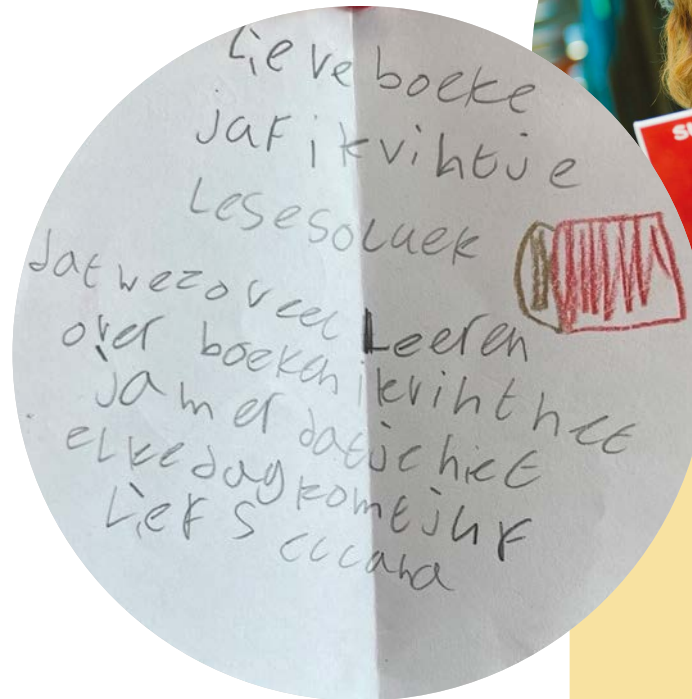 Lieve boeke
jaf ik vihtje
Lesesoluek
dat we zo veel Leeren
over boeken ik viht het
jamer dat je hiet
elke dag komt juf
Liefs